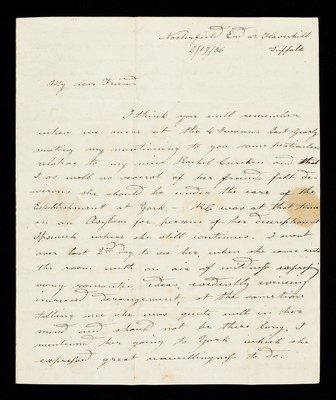 Nosterfield End nr Haverhill
Suffolk
My dear Friend
I think you will remember
when we were at the 4 Swans last Yearly
meeting my mentioning to you some particulars
relative to my niece Rachel and that
I as well as several of her friends felt de-
sirous she should be under the care of the
Establishment at York. RC was at that time
in an Asylum for persons of her description at
Ipswich where she still continues. I went
over last 2nd day to see her when she came into
the room with an air of wildness express'g
many romantic ideas, evidently evincing
increased derangement, at the same time
telling me she was quite well in her
mind and should not be there long. I
mentioned her going to York which she
expressed great unwillingness to do.